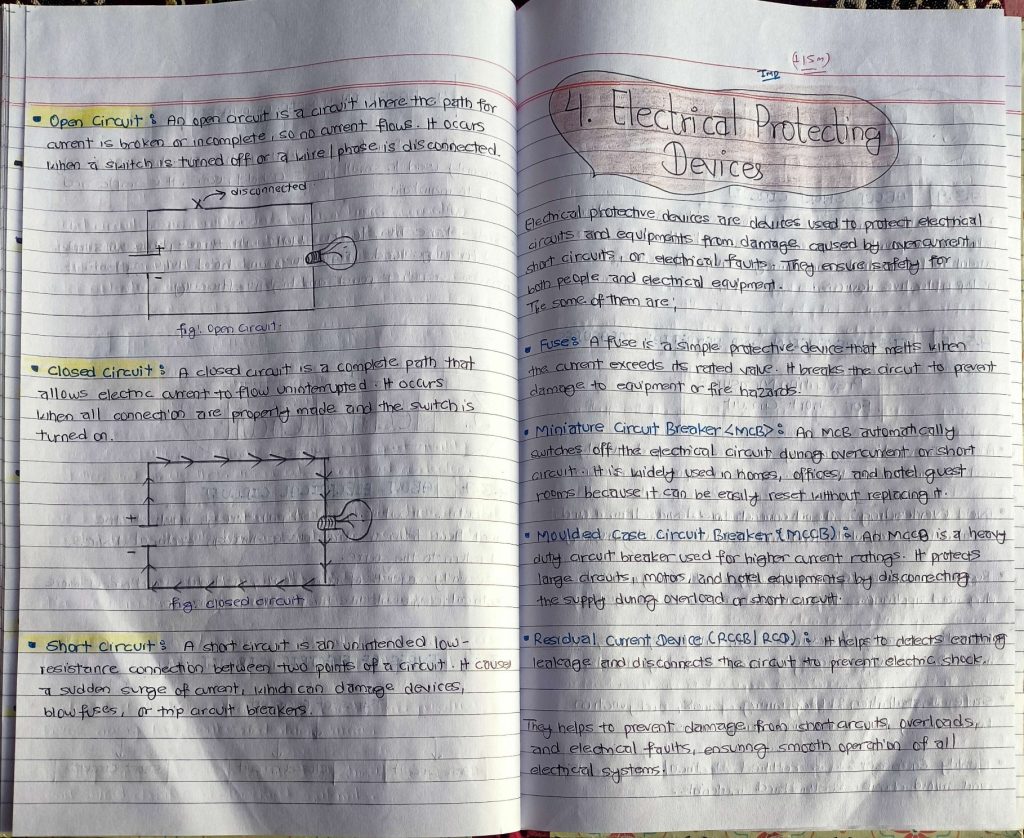 • Open Circuit : An open circuit is a circuit where the path for
current is broken or incomplete, so no current flows. It occurs
when a switch is turned off or a wire/phase is disconnected.
x → disconnected
+
-
fig: Open Circuit.
• Closed Circuit : A closed circuit is a complete path that
allows electric current to flow uninterrupted. It occurs
when all connection are properly made and the switch is
turned on.
+
-
fig: closed circuit
• Short circuit : A short circuit is an unintended low-
resistance connection between two points of a circuit. It causes
a sudden surge of current, which can damage devices,
blow fuses, or trip circuit breakers.
IMP
4. Electrical Protecting
Devices
Electrical protective devices are devices used to protect electrical
circuits and equipments from damage caused by overcurrent,
short circuits, or electrical faults. They ensure safety for
both people and electrical equipment.
The some of them are;
• Fuse : A fuse is a simple protective device that melts when
the current exceeds its rated value. It breaks the circuit to prevent
damage to equipment or fire hazards.
• Miniature Circuit Breaker <MCB> : An MCB automatically
switches off the electrical circuit during overcurrent or short
circuit. It is widely used in homes, offices, and hotel guest
rooms because it can be easily reset without replacing it.
• Moulded Case Circuit Breaker {MCCB) : An MCCB is a heavy
duty circuit breaker used for higher current ratings. It protects
large circuits, motors, and hotel equipments by disconnecting
the supply during overload or short circuit.
• Residual Current Device (RCCB/RCD) : It helps to detects earthing
leakage and disconnects the circuit to prevent electric shock.
They helps to prevent damage from short circuits, overloads,
and electrical faults, ensuring smooth operation of all
electrical systems.